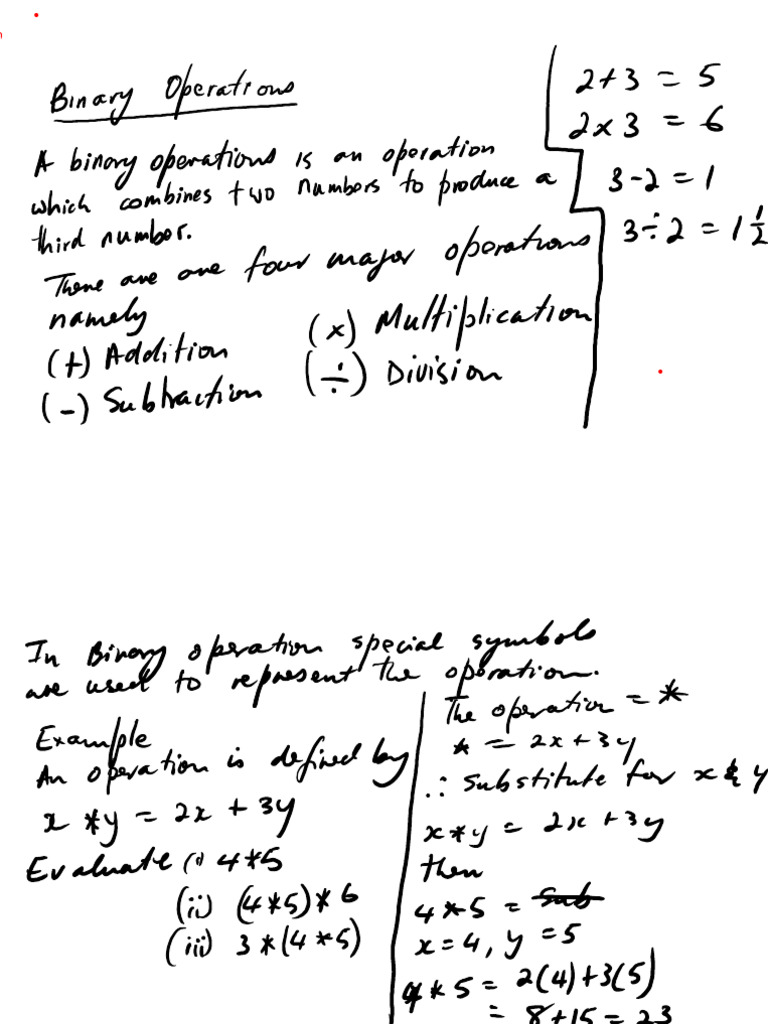 Binary Operations
A binary operations is an operation
which combines two numbers to produce a
third number.
There are are four major operations
namely
(+) Addition
(×) Multiplication
(-) Subtraction
(÷) Division
2+3 = 5
2×3 = 6
3-2 = 1
3÷2 = 1 1/2
In Binary operation special symbols
are used to represent the operation.
Example
An operation is defined by
x *y = 2x + 3y
Evaluate (i) 4*5
(ii) (4*5)*6
(iii) 3*(4*5)
The operation = *
* = 2x+3y
∴ substitute for x & y
x*y = 2x +3y
then
4*5 = sub
x=4, y =5
4*5 = 2(4)+3(5)
= 8+15 = 23